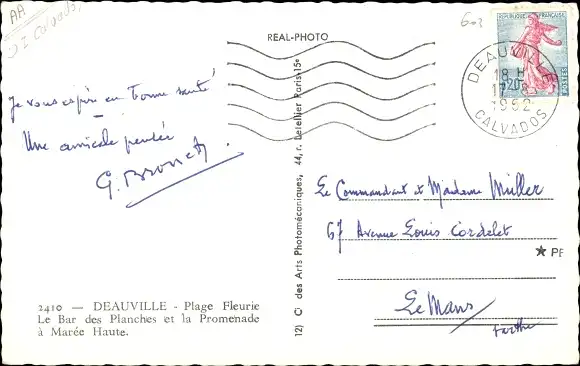 AA
Calvados,
602
REAL-PHOTO
REPUBLIQUE FRANÇAISE
POSTES
0,20
DEAUVILLE
18 H
17-8
1962
CALVADOS
Je vous espère en bonne santé
Une amicale pensée
G. Bronet
12) Cie des Arts Photomécaniques, 44, r. Letellier Paris-15e
Le Commandant et Madame Müller
67 Avenue Louis Cordelet
★ PE
Le Mans
Sarthe
2410 — DEAUVILLE - Plage Fleurie
Le Bar des Planches et la Promenade
à Marée Haute.